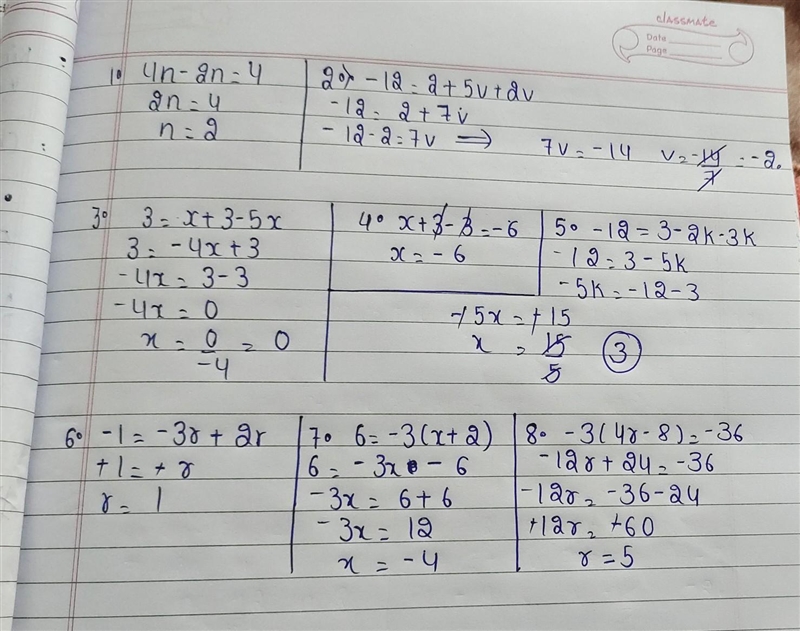 classmate
Date
Page
1° 4n-2n=4
2n=4
n=2
2°) -12=2+5v+2v
-12=2+7v
-12-2=7v ⇒ 7v=-14 v=-14/7=-2.
3° 3=x+3-5x
3=-4x+3
-4x=3-3
-4x=0
x=0/-4=0
4° x+3-3=-6
x=-6
5° -12=3-2k-3k
-12=3-5k
-5k=-12-3
-5x=+15
x=15/5 3
6° -1=-3r+2r
+1=+r
r=1
7° 6=-3(x+2)
6=-3x-6
-3x=6+6
-3x=12
x=-4
8° -3(4r-8)=-36
-12r+24=-36
-12r=-36-24
+12r=+60
r=5